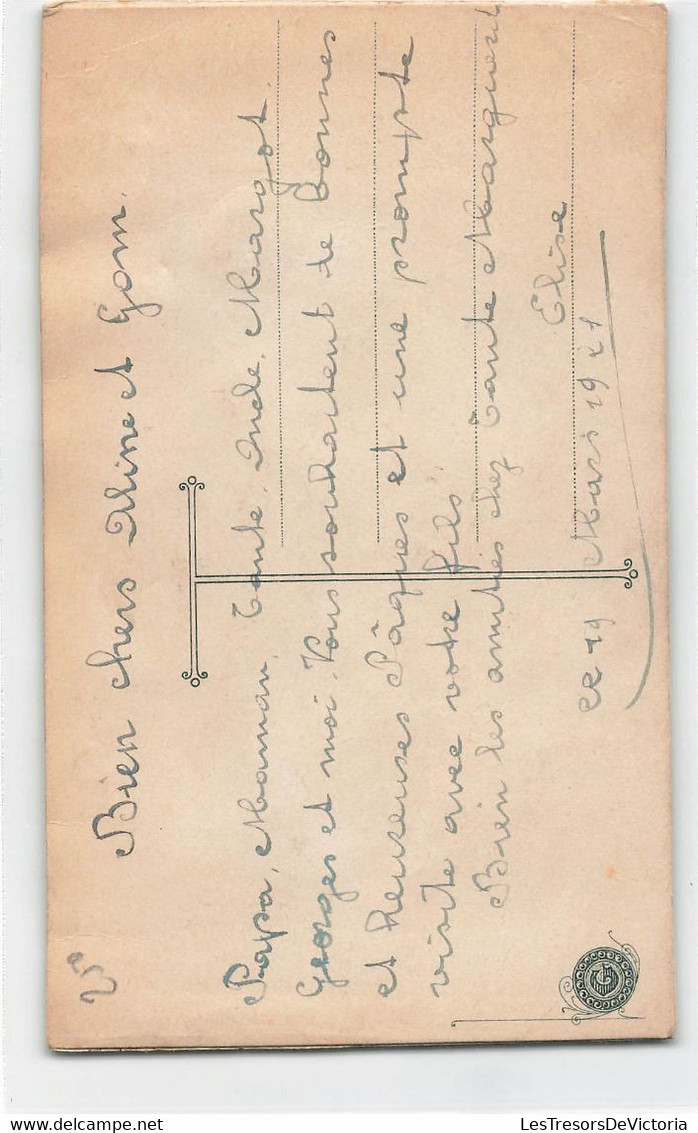 Bien chers Aline et Gom.
Papa, Maman, Tante, Oncle, Margot.
Georges et moi. Vous souhaitent de bonnes
et heureuses Pâques et une prompte
visite avec votre fils.
Bien les amitiés chez Tante
Elise
ce 19 Mars 1921
LesTresorsDeVictoria